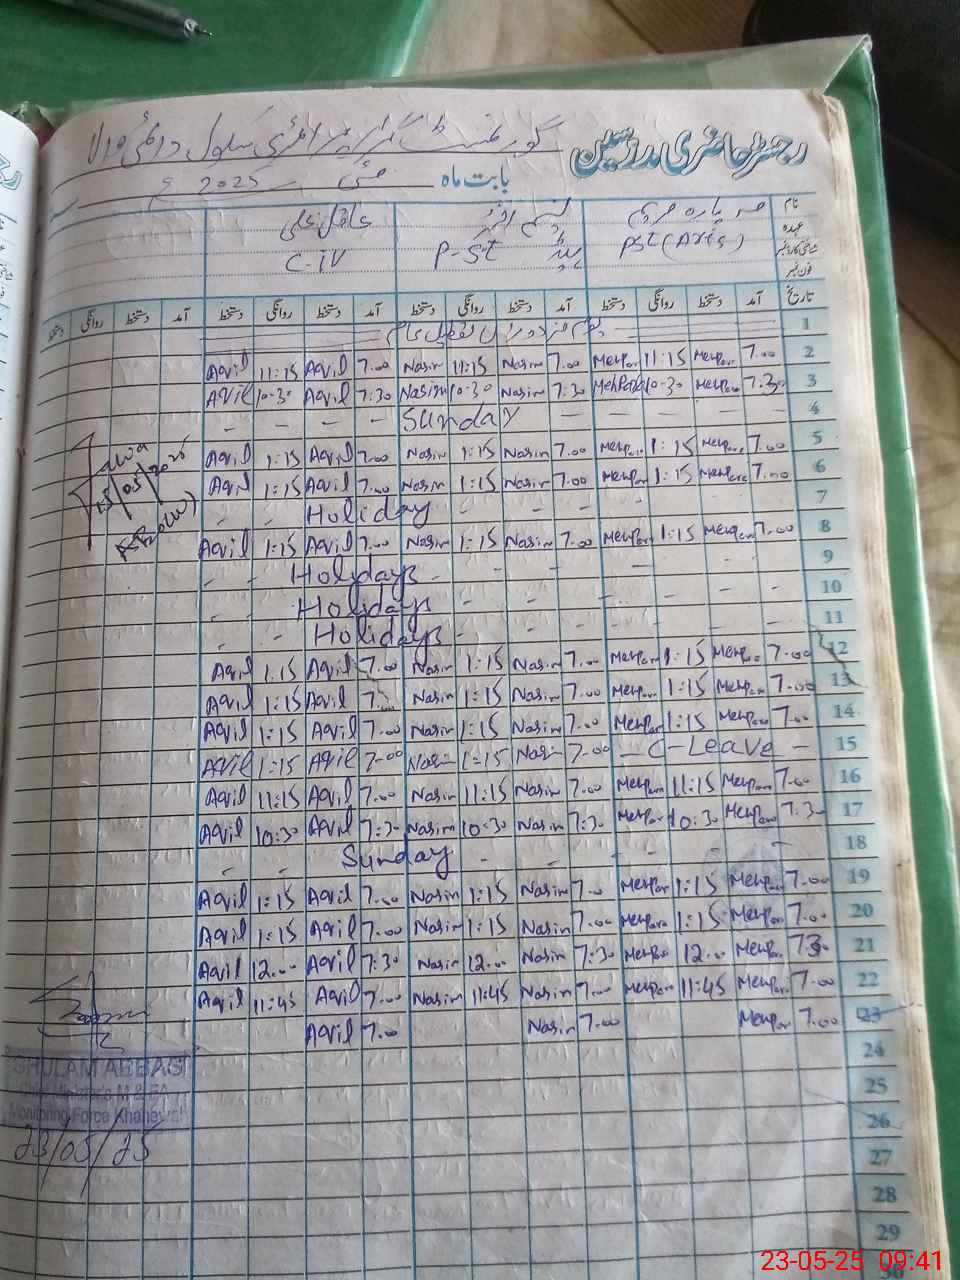 رجسٹر حاضری مدرسین
گورنمنٹ گرلز پرائمری سکول
بابت ماہ مئی 2025ء
نام مہ پارہ
عہدہ PST (Arts) P-St C-iV
شناختی کارڈ نمبر
فون نمبر
تاریخ آمد دستخط روانگی دستخط آمد دستخط روانگی دستخط آمد دستخط روانگی دستخط آمد دستخط روانگی دستخط
1
Aqvil 11:15 Aqvil 7.00 Nasim 11:15 Nasim 7.00 Mehpar 11:15 Mehpar 7.00 2
Aqvil 10-30 Aqvil 7:30 Nasim 10-30 Nasim 7:30 Mehpara 10-30 Mehpar 7:30 3
- - - - Sunday - - - - 4
Aqvil 1:15 Aqvil 7.00 Nasim 1:15 Nasim 7.00 Mehpar 1:15 Mehpara 7.00 5
Aqvil 1:15 Aqvil 7.00 Nasim 1:15 Nasim 7.00 Mehpar 1:15 Mehpara 7.00 6
- - Holiday - - - - - - 7
Aqvil 1:15 Aqvil 7.00 Nasim 1:15 Nasim 7.00 Mehpar 1:15 Mehpar 7.00 8
- - Holidays - - - - - 9
- - Holidays - - - - - 10
- - Holidays - - - - - 11
Aqvil 1.15 Aqvil 7.00 Nasim 1:15 Nasim 7.00 Mehpar 1:15 Mehpar 7.00 12
Aqvil 1:15 Aqvil 7.00 Nasim 1:15 Nasim 7.00 Mehpar 1:15 Mehpar 7.00 13
Aqvil 1:15 Aqvil 7.00 Nasim 1:15 Nasim 7.00 Mehpar 1:15 Mehpara 7.00 14
Aqvil 1:15 Aqvil 7-00 Nasim 1:15 Nasim 7-00 - C-Leave - 15
Aqvil 11:15 Aqvil 7.00 Nasim 11:15 Nasim 7.00 Mehpara 11:15 Mehpara 7.00 16
Aqvil 10:30 Aqvil 7:30 Nasim 10:30 Nasim 7:30 Mehpar 10:30 Mehpara 7.30 17
- - Sunday - - - - - 18
Aqvil 1:15 Aqvil 7.00 Nasim 1:15 Nasim 7.00 Mehpar 1:15 Mehpar 7.00 19
Aqvil 1:15 Aqvil 7.00 Nasim 1:15 Nasim 7.00 Mehpara 1:15 Mehpar 7.00 20
Aqvil 12.00 Aqvil 7:30 Nasim 12.00 Nasim 7:30 Mehpar 12.00 Mehpar 7:30 21
Aqvil 11:45 Aqvil 7.00 Nasim 11:45 Nasim 7.00 Mehpar 11:45 Mehpar 7.00 22
Aqvil 7.00 Nasim 7.00 Mehpar 7.00 23
24
25
26
27
28
29
GHULAM ABBAS
Chief Minister's M & EA
Monitoring Force Khanewal
23/05/25
23-05-25 09:41